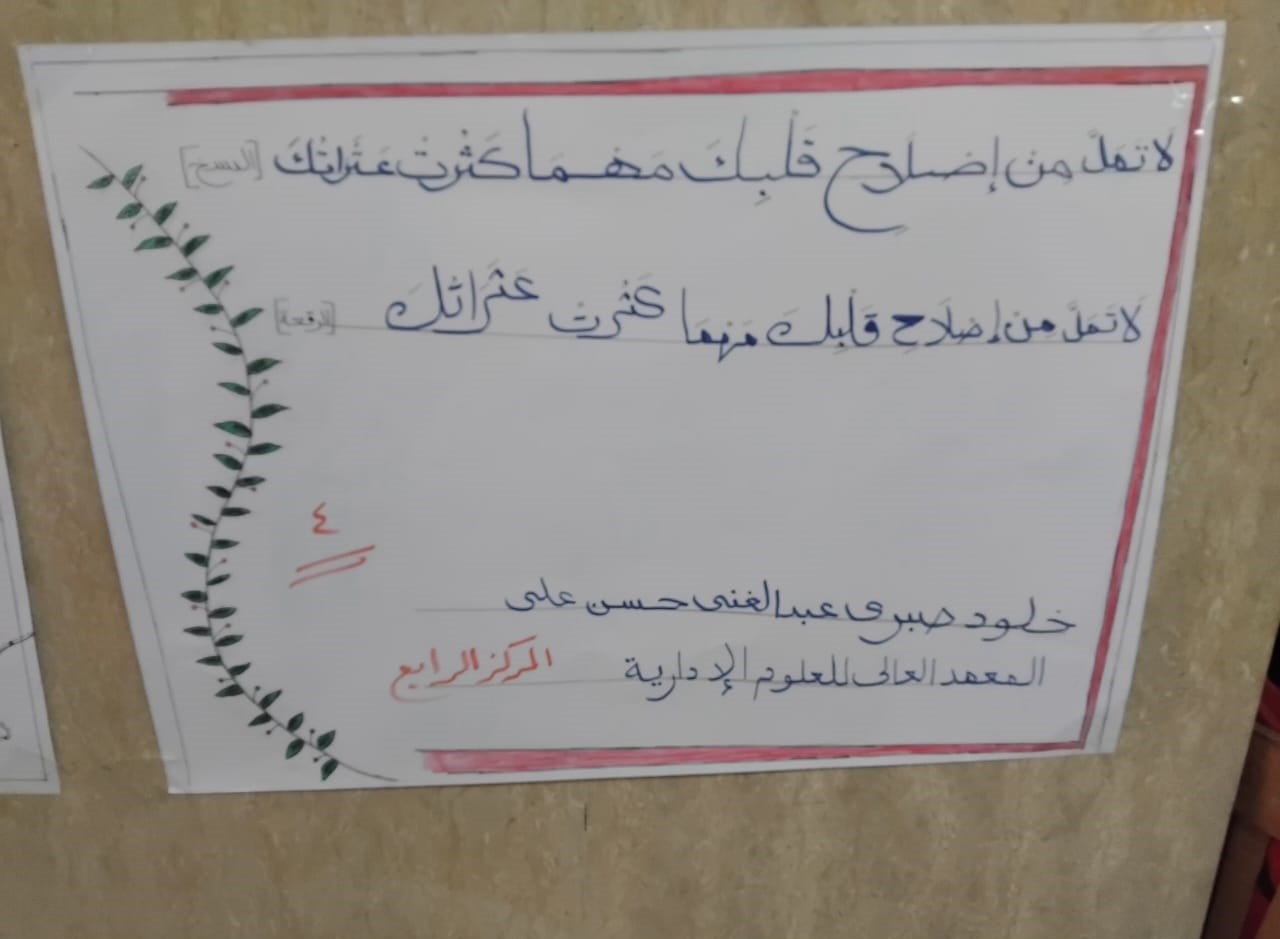 لَا تَمَلَّ مِنْ إِصْلَاحِ قَلْبِكَ مَهْمَا كَثُرَتْ عَثَرَاتُكَ [النسخ]
لَا تَمَلَّ مِنْ إِصْلَاحِ قَلْبِكَ مَهْمَا كَثُرَتْ عَثَرَاتُكَ [الرقعة]
٤
خلود صبرى عبد الغنى حسن على
المعهد العالى للعلوم الإدارية المركز الرابع